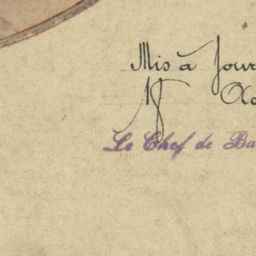 Mis à Jour
Le Chef de Ba